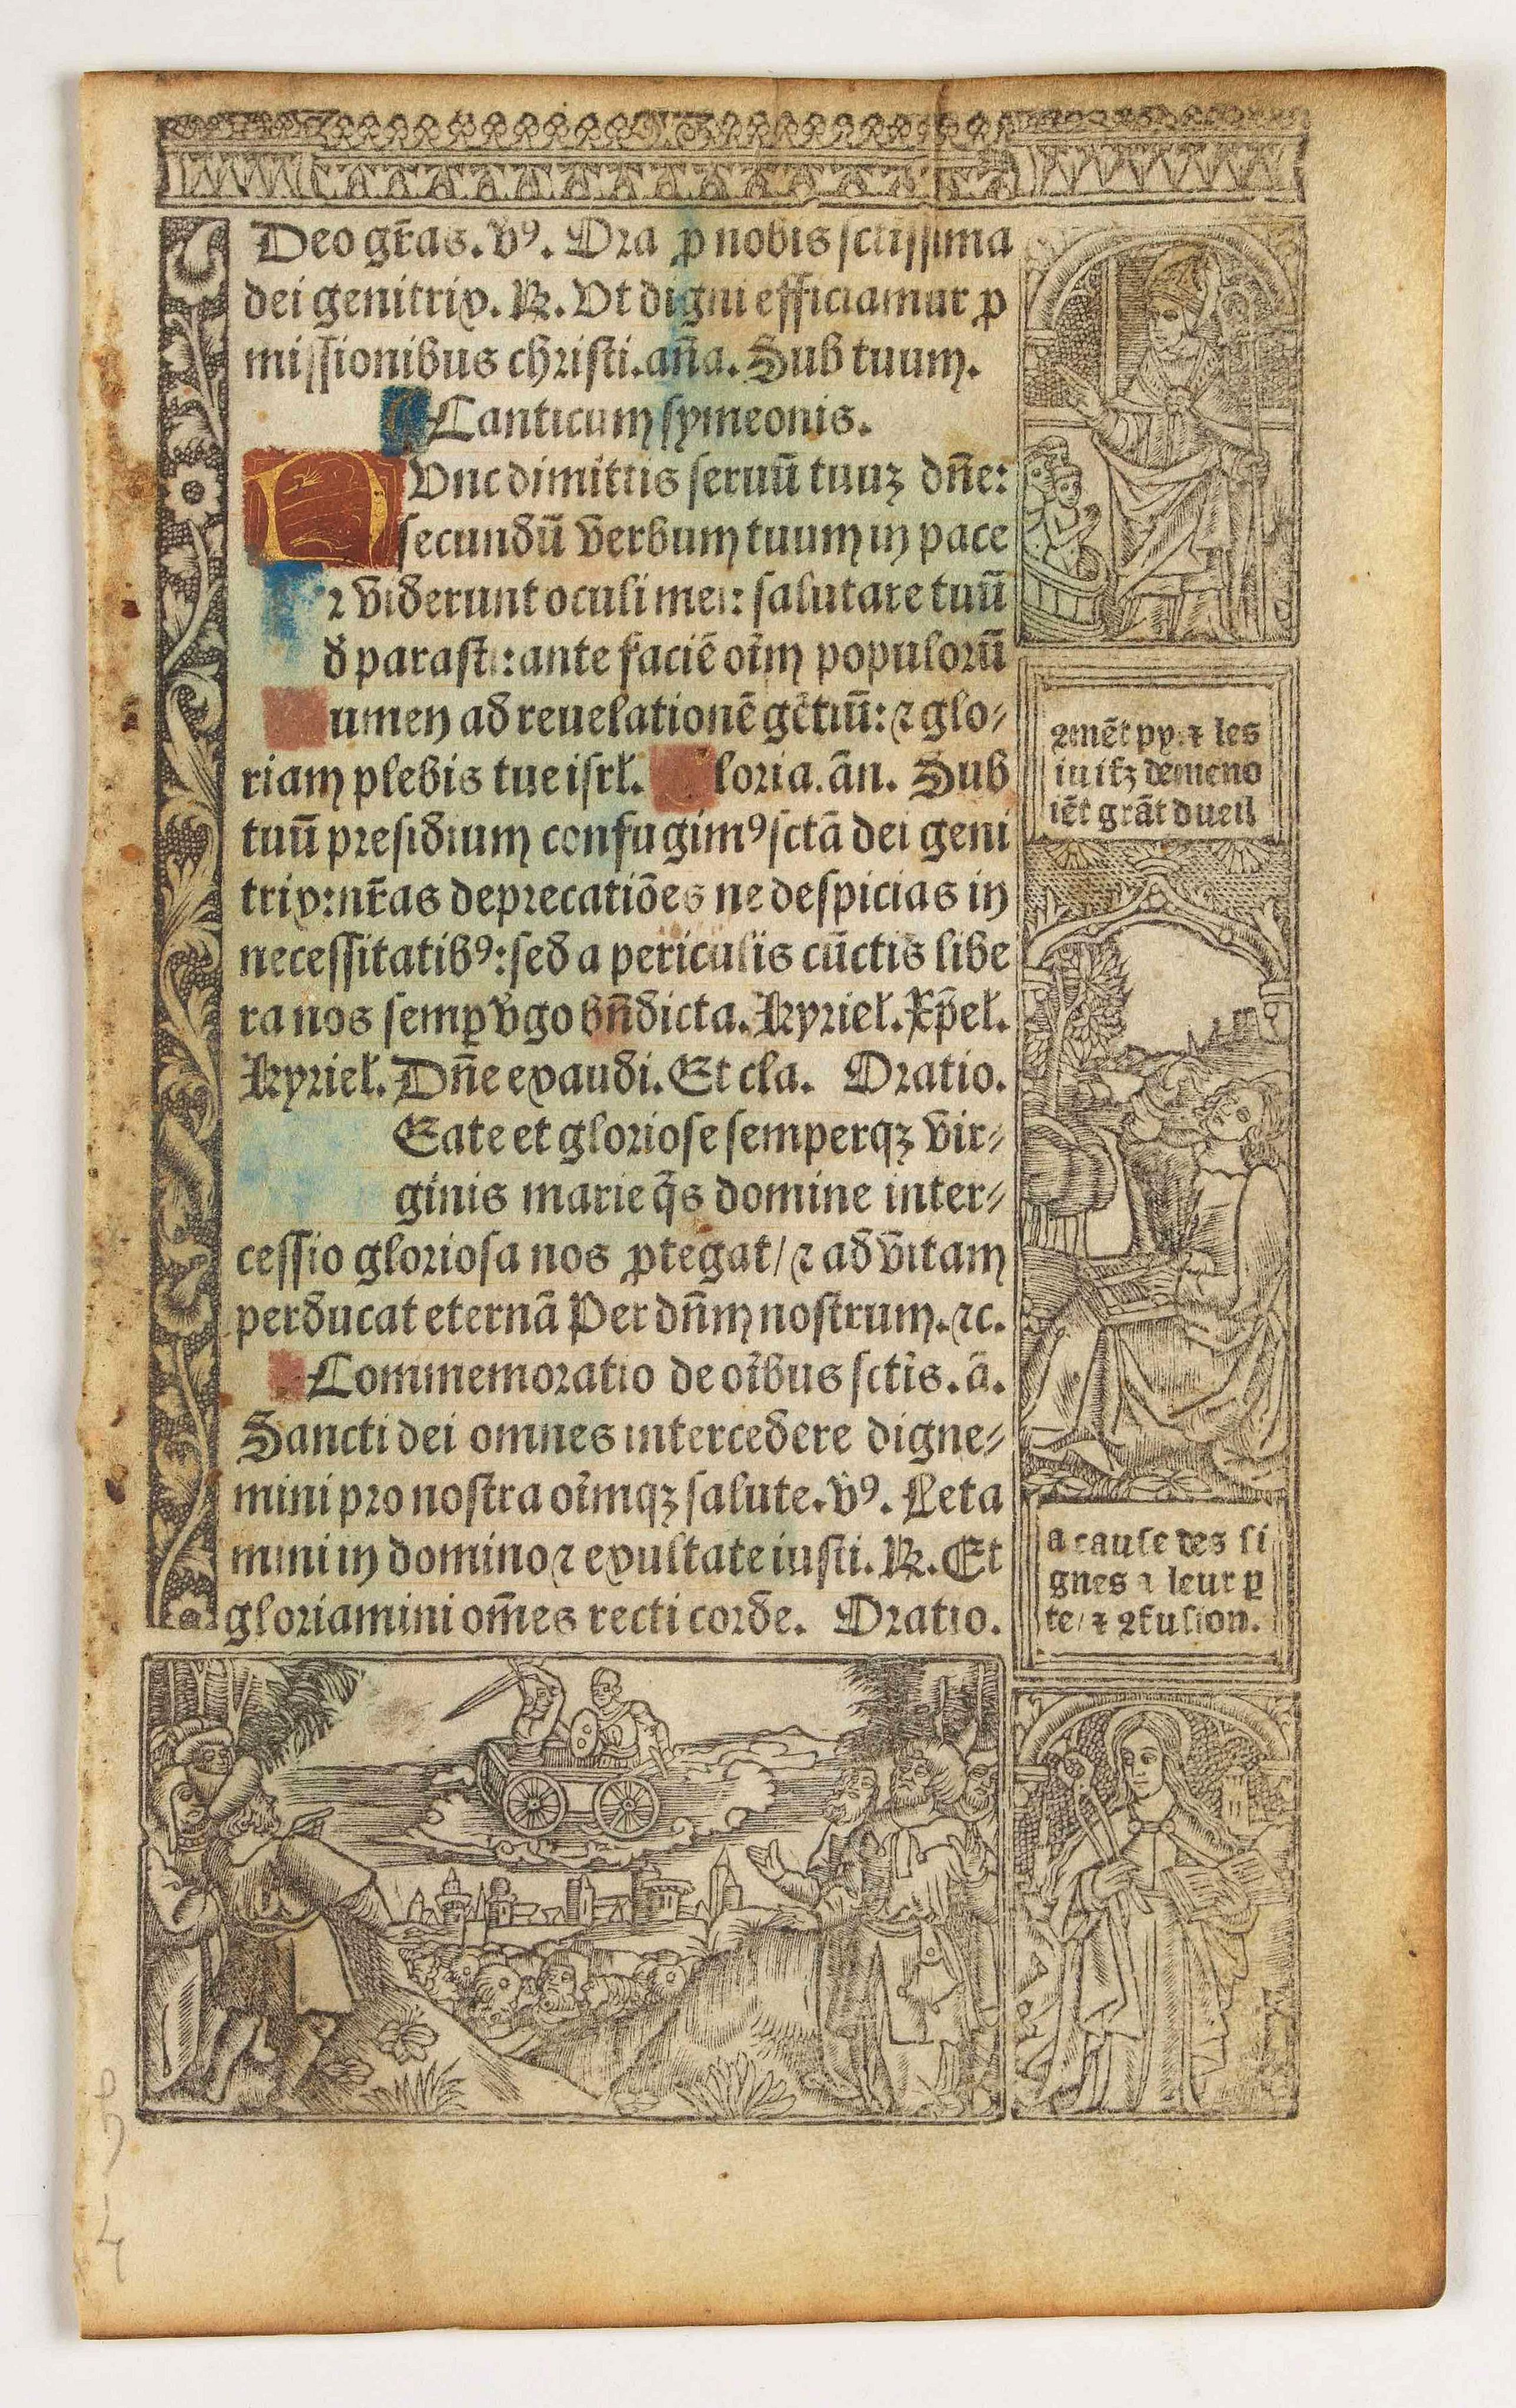 Deo gr̃as. v̾ꝰ. Ora ꝓ nobis sctissima
dei genitrix. ℞. Vt digni efficiamur ꝓ
missionibus christi. an̄a. Sub tuum.
Canticum symeonis.
NVnc dimittis seruū tuuꝫ dn̄e:
secundū verbum tuum in pace
ꝛ viderunt oculi mei: salutare tuū
d̄ parasti: ante faciē oīm populorū
umen ad reuelationē gētiū: ꝛ glo⸗
riam plebis tue isrł. loria. ān. Sub
tuū presidium confugimꝰ sctā dei geni
trix: nr̃as deprecatiōes ne despicias in
necessitatibꝰ: sed a periculis cūctis libe
ra nos semꝑ v̄go bn̄dicta. Kyrieł. Xp̄eł.
Kyrieł. Dn̄e exaudi. Et cla. Oratio.
Eate et gloriose semperqꝫ vir⸗
ginis marie q̄s domine inter⸗
cessio gloriosa nos ꝓtegat/ ꝛ ad vitam
perducat eternā Per dn̄m nostrum. ꝛc.
Commemoratio de oībus sctīs. ā.
Sancti dei omnes intercedere digne⸗
mini pro nostra oīmqꝫ salute. v̾ꝰ. Leta
mini in domino ꝛ exultate iusti. ℞. Et
gloriamini om̄es recti corde. Oratio.
ꝯmēt px. ꝛ les
iuifz demeno
iēt grāt dueil
a cause des si
gnes ꝛ leur ꝑ
te/ ꝛ ꝯfusion.